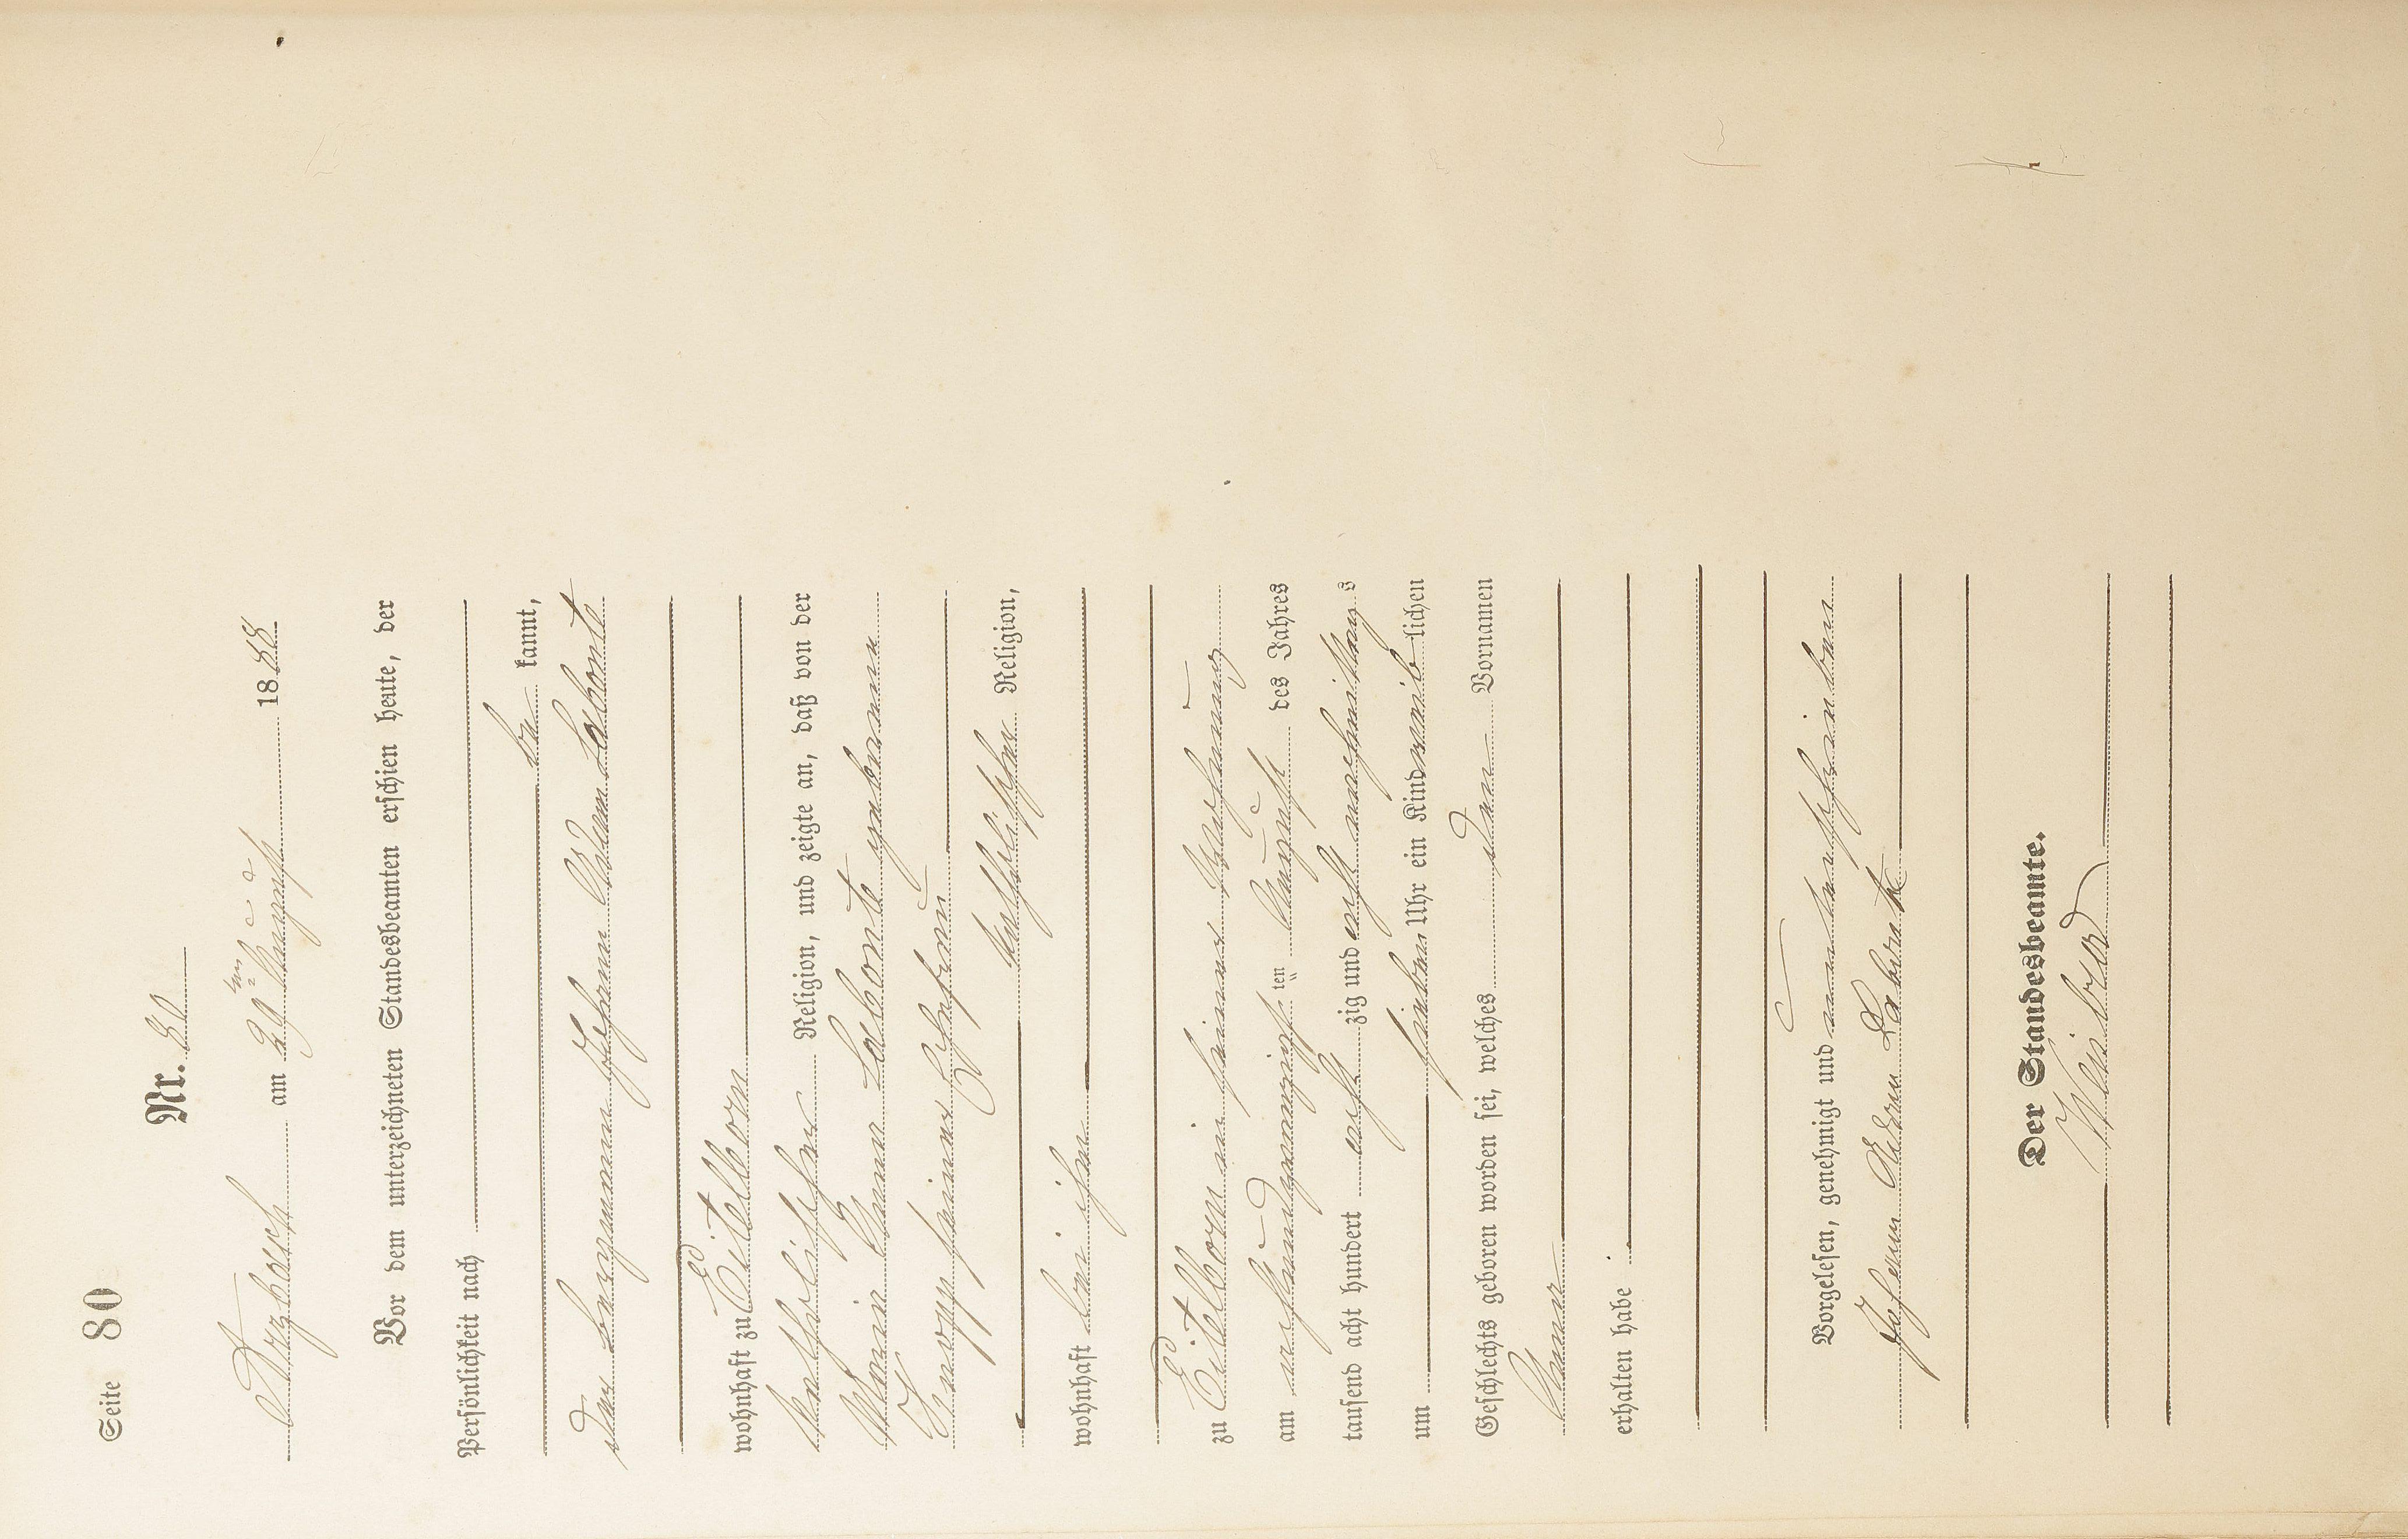 Seite 80
Nr. 80
Arzbach am 29ten August 1888
Vor dem unterzeichneten Standesbeamten erschien heute, der
Persönlichkeit nach
be kannt,
der Bergmann Johann Adam Labonte
wohnhaft zu Eitelborn
katholischer Religion, und zeigte an, daß von der
Maria Anna Labonte geborenen
Knopp seiner Ehefrau
katholischer Religion,
wohnhaft bei ihm
zu Eitelborn in seiner Wohnung
am achtundzwanzigsten August des Jahres
tausend acht hundert acht zig und acht nachmittags
um sieben Uhr ein Kind weib lichen
Geschlechts geboren worden sei, welches den Vornamen
Anna
erhalten habe
Vorgelesen, genehmigt und unterschrieben
Johann Adam Labonte
Der Standesbeamte.